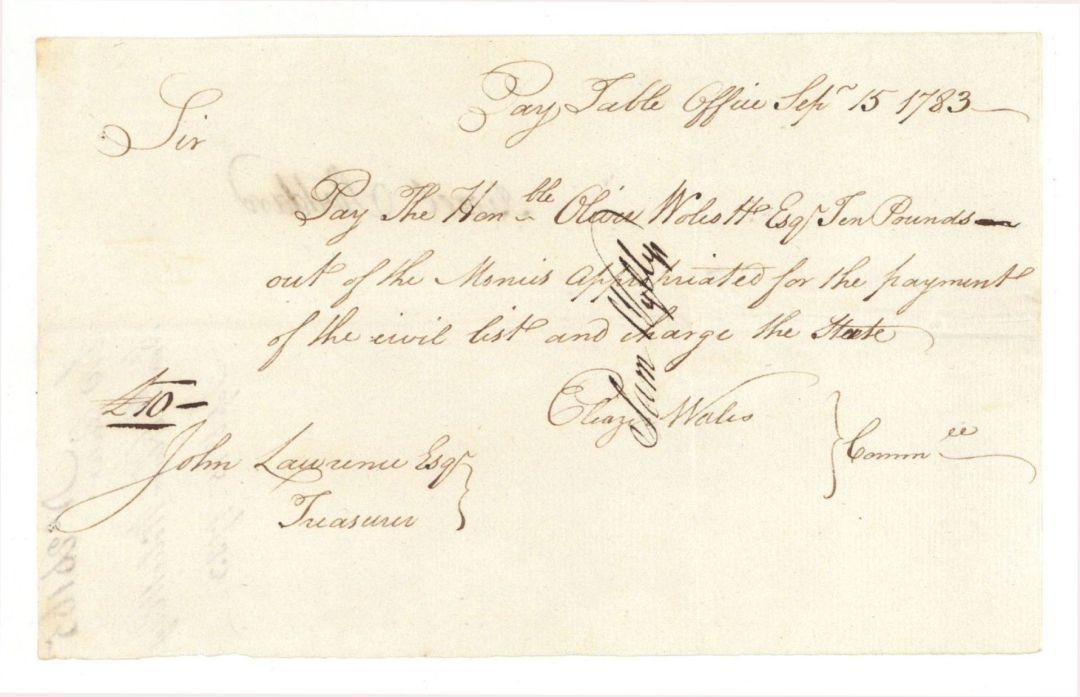 Pay Table Office Sepr 15 1783
Sir
Pay The Honble Oliver Wolcott Esqr Ten Pounds
out of the Monies appropriated for the payment
of the civil list and charge the State
£10
Eleazr Wales
Commee
John Lawrence Esqr
Treasurer
Sam Wyllys